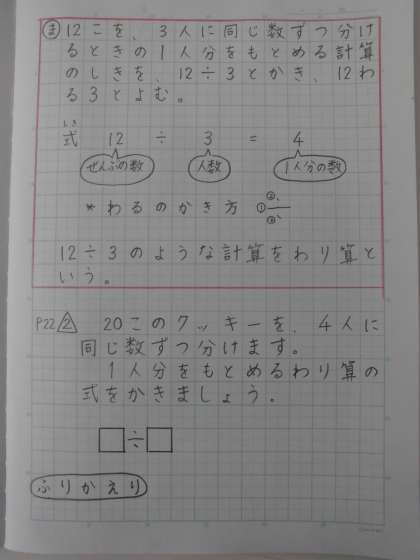 ま 12こを、3人に同じ数ずつ分け
るときの1人分をもとめる計算
のしきを、12÷3とかき、12わ
る3とよむ。
しき
式 12 ÷ 3 = 4
ぜんぶの数 人数 1人分の数
*わるのかき方 ①②③
12÷3のような計算をわり算と
いう。
P22 2 20このクッキーを、4人に
同じ数ずつ分けます。
1人分をもとめるわり算の
式をかきましょう。
□÷□
ふりかえり